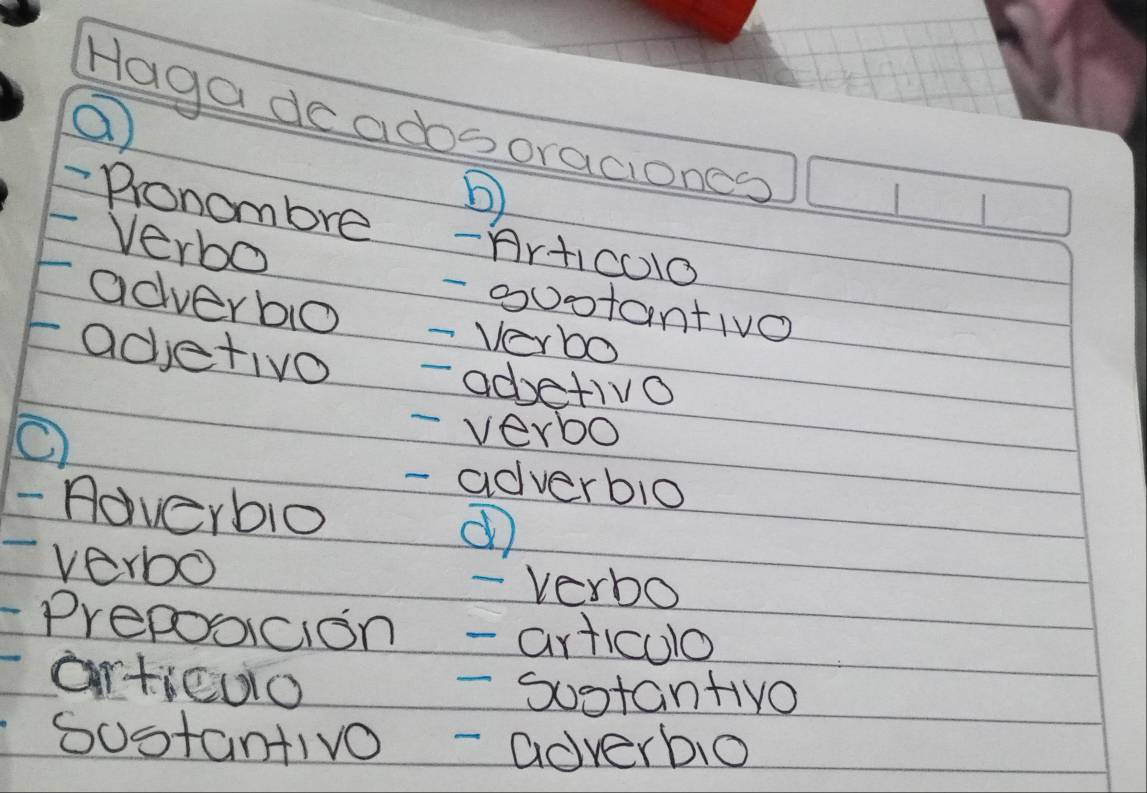 Haga de ados oraciones
a)
- Pronombre
- Verbo
- adverbio
- adjetivo
b)
- Articulo
- sustantivo
- Verbo
- adjetivo
- verbo
- adverbio
c)
- Adverbio
- verbo
- Preposición
- articulo
- Sustantivo
d)
- verbo
- articulo
- Sustantivo
- adverbio